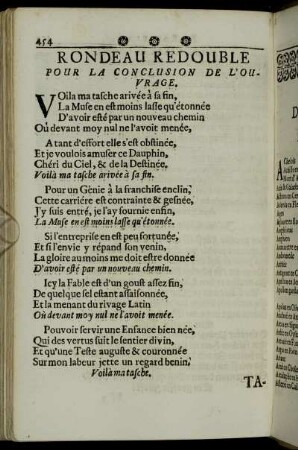 454
RONDEAU REDOUBLE
POUR LA CONCLUSION DE L'OU-
VRAGE.
Voila ma tasche arivée à sa fin,
La Muse en est moins lasse qu'étonnée
D'avoir esté par un nouveau chemin
Où devant moy nul ne l'avoit menée,
A tant d'effort elle s'est obstinée,
Et je voulois amuser ce Dauphin,
Chéri du Ciel, & de la Destinée,
Voilà ma tasche arivée à sa fin.
Pour un Génie à la franchise enclin,
Cette carriére est contrainte & gesnée,
J'y suis entré, je l'ay fournie enfin,
La Muse en est moins lasse qu'étonnée.
Si l'entreprise en est peu fortunée,
Et si l'envie y répand son venin,
La gloire au moins me doit estre donnée
D'avoir esté par un nouveau chemin.
Icy la Fable est d'un goust assez fin,
De quelque sel estant assaisonnée,
Et la menant du rivage Latin
Où devant moy nul ne l'avoit menée.
Pouvoir servir une Enfance bien née,
Qui des vertus suit le sentier divin,
Et qu'une Teste auguste & couronnée
Sur mon labeur jette un regard benin,
Voilà ma tasche.
TA-